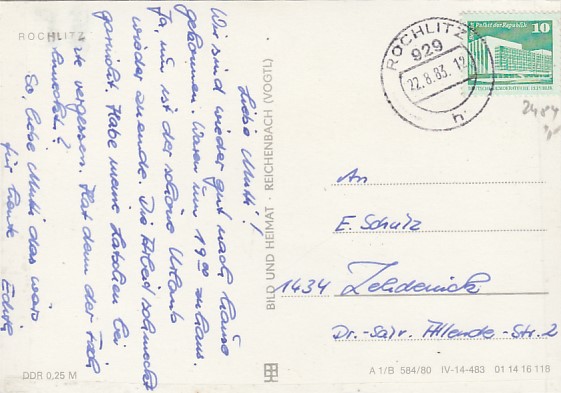 ROCHLITZ
Liebe Mutti!
Wir sind wieder gut nach Hause
gekommen. Waren um 19⁰⁰ zuhaus.
Ja, nun ist der schöne Urlaub
wieder zu ende. Die Arbeit schmeckt
gar nicht. Habe meine bei
vergessen. Hat denn der
So, liebe Mutti das wärs
für heute
DDR 0,25 M
BILD UND HEIMAT · REICHENBACH (VOGTL)
Palast der Republik 10
DEUTSCHE DEMOKRATISCHE REPUBLIK
ROCHLITZ
929
22.8.83. 12
h
2484
An
E. Schulz
1434 Zehdenick
Dr.-Salv. Allende-Str. 2
A 1/B 584/80 IV-14-483 01 14 16 118